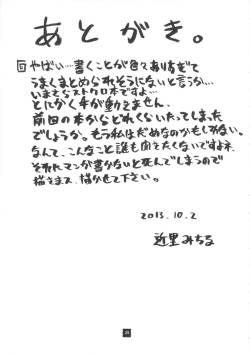 あとがき。
回やばい…書くことが色々ありすぎて
うまくまとめられそうにないと言うか…
いまさらストウロ本ですよ…
とにかく手が動きません、
前回の本からどれくらいたってしまった
でしょうか。もう私はだめなのかもしれない。
なんて、こんなこと誰も
ないですよ
それにマンガ書かないと死んでしまうので
描きます、描かせて下さい。
2013.10.2
近里みちる